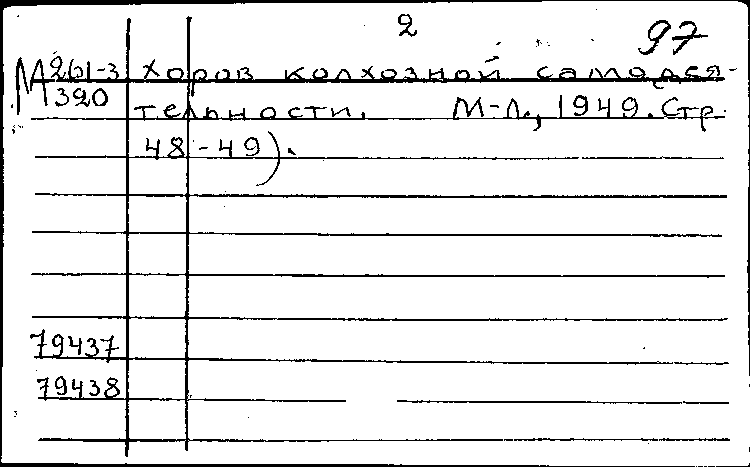 2
97
М 261-3 хоров колхозной самодея-
320 тельности. М-Л., 1949. Стр.
48-49).
79437
79438